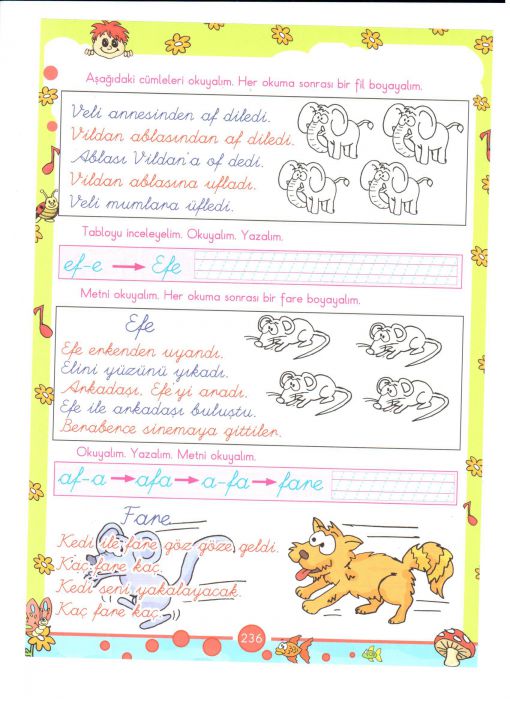 Aşağıdaki cümleleri okuyalım. Her okuma sonrası bir fil boyayalım.
Veli annesinden af diledi.
Vildan ablasından af diledi.
Ablası Vildan'a of dedi.
Vildan ablasına ufladı.
Veli mumlara üfledi.
Tabloyu inceleyelim. Okuyalım. Yazalım.
ef-e → Efe
Metni okuyalım. Her okuma sonrası bir fare boyayalım.
Efe
Efe erkenden uyandı.
Elini yüzünü yıkadı.
Arkadaşı, Efe'yi aradı.
Efe ile arkadaşı buluştu.
Beraberce sinemaya gittiler.
Okuyalım. Yazalım. Metni okuyalım.
af-a → afa → a-fa → fare
Fare
Kedi ile fare göz göze geldi.
Kaç fare kaç.
Kedi seni yakalayacak.
Kaç fare kaç.
236